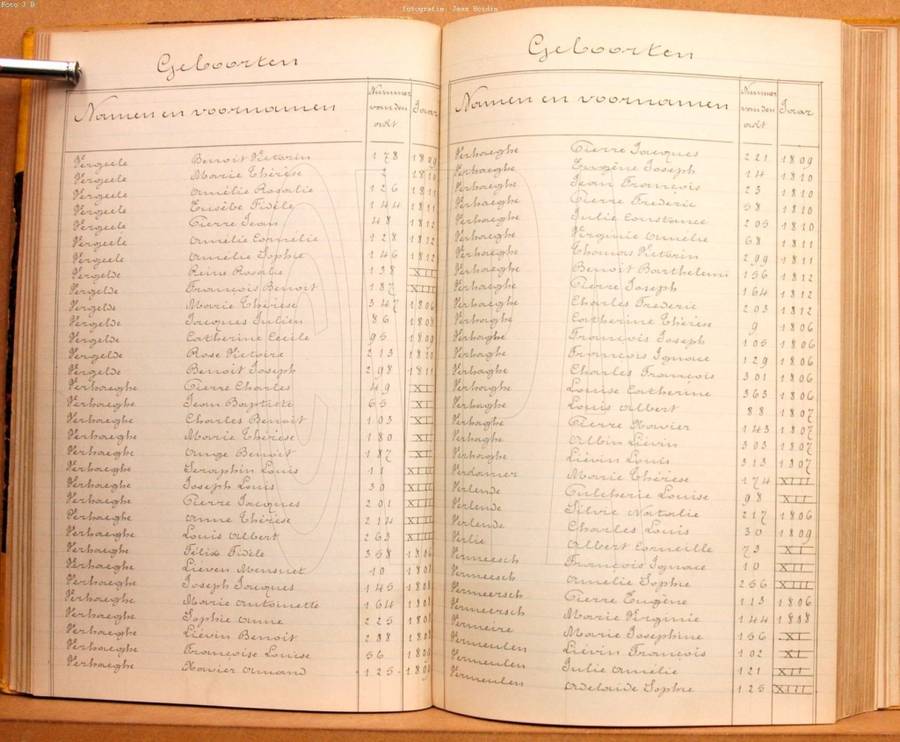 Foto J B
fotografie: Jean Boidin
Geboorten
Namen en voornamen Nummer van den acht Jaar
Vergeele Benoit Victorin 178 1809
Vergeele Marie Thérèse 2 1810
Vergeele Amélie Rosalie 126 1811
Vergeele Eusèbe Fidèle 144 1811
Vergeele Pierre Jean 48 1812
Vergeele Amélie Cornélie 128 1812
Vergeele Amélie Sophie 146 1812
Vergelde Reine Rosalie 138 XII
Vergelde François Benoit 187 XIII
Vergelde Marie Thérèse 347 1806
Vergelde Jacques Julien 86 1808
Vergelde Catherine Cécile 95 1809
Vergelde Rose Victoire 213 1810
Vergelde Benoit Joseph 298 1811
Verhaeghe Pierre Charles 49 XI
Verhaeghe Jean Baptiste 65 XI
Verhaeghe Charles Benoit 103 XI
Verhaeghe Marie Thérèse 180 XI
Verhaeghe Ange Benoit 187 XI
Verhaeghe Seraphin Louis 11 XII
Verhaeghe Joseph Louis 39 XIII
Verhaeghe Pierre Jacques 201 XIII
Verhaeghe Anne Thérèse 214 XIII
Verhaeghe Louis Albert 263 XIII
Verhaeghe Félix Fidèle 358 1806
Verhaeghe Lieven 10 1808
Verhaeghe Joseph Jacques 145 1808
Verhaeghe Marie Antoinette 164 1808
Verhaeghe Sophie Anne 225 1808
Verhaeghe Liévin Benoit 238 1808
Verhaeghe Françoise Louise 56 1809
Verhaeghe Xavier Armand 125 1809
Geboorten
Namen en voornamen Nummer van den acht Jaar
Verhaeghe Pierre Jacques 221 1809
Verhaeghe Eugène Joseph 14 1810
Verhaeghe Jean François 23 1810
Verhaeghe Pierre Frederic 58 1810
Verhaeghe Julie Constance 205 1810
Verhaeghe Virginie Amélie 68 1811
Verhaeghe Thomas Victorin 299 1811
Verhaeghe Benoit Barthelemi 156 1812
Verhaeghe Pierre Joseph 164 1812
Verhaeghe Charles Frederic 203 1812
Verhaghe Catherine Thérèse 9 1806
Verhaghe François Joseph 105 1806
Verhaghe François Ignace 129 1806
Verhaghe Charles François 301 1806
Verhaghe Louise Catherine 363 1806
Verhaghe Louis Albert 88 1807
Verhaghe Pierre Xavier 143 1807
Verhaghe Albin Liévin 303 1807
Verhaghe Liévin Louis 313 1807
Verdamer Marie Thérèse 174 XIII
Verlende Pulcherie Louise 98 XII
Verlende Silvie Natalie 217 1806
Verlende Charles Louis 30 1809
Verlie Albert Corneille 73 XI
Vermeesch François Ignace 10 XII
Vermeesch Amelie Sophie 256 XIII
Vermeersch Pierre Eugène 113 1806
Vermeersch Marie Virginie 144 1808
Vermeire Marie Josephine 156 XI
Vermeulen Liévin François 102 XI
Vermeulen Julie Amélie 121 XII
Vermeulen Adelaide Sophie 125 XIII